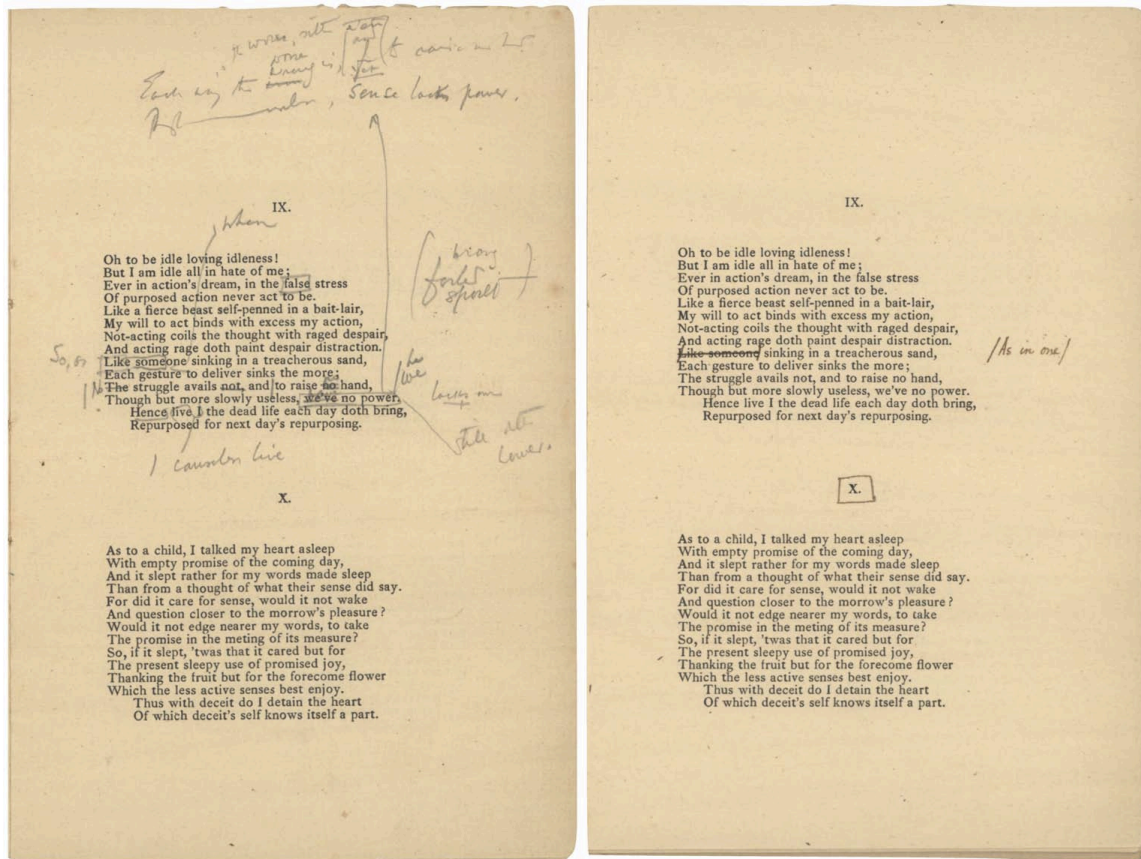 Each way the
sense lacks power.
IX.
when
Oh to be idle loving idleness!
But I am idle all in hate of me;
Ever in action's dream, in the false stress
Of purposed action never act to be.
Like a fierce beast self-penned in a bait-lair,
My will to act binds with excess my action,
Not-acting coils the thought with raged despair,
And acting rage doth paint despair distraction.
Like someone sinking in a treacherous sand,
Each gesture to deliver sinks the more;
The struggle avails not, and to raise no hand,
Though but more slowly useless, we've no power.
Hence live I the dead life each day doth bring,
Repurposed for next day's repurposing.
So, as
lacks our
I causeless live
X.
As to a child, I talked my heart asleep
With empty promise of the coming day,
And it slept rather for my words made sleep
Than from a thought of what their sense did say.
For did it care for sense, would it not wake
And question closer to the morrow's pleasure?
Would it not edge nearer my words, to take
The promise in the meting of its measure?
So, if it slept, 'twas that it cared but for
The present sleepy use of promised joy,
Thanking the fruit but for the forecome flower
Which the less active senses best enjoy.
Thus with deceit do I detain the heart
Of which deceit's self knows itself a part.
IX.
Oh to be idle loving idleness!
But I am idle all in hate of me;
Ever in action's dream, in the false stress
Of purposed action never act to be.
Like a fierce beast self-penned in a bait-lair,
My will to act binds with excess my action,
Not-acting coils the thought with raged despair,
And acting rage doth paint despair distraction.
Like someone sinking in a treacherous sand, /As in one/
Each gesture to deliver sinks the more;
The struggle avails not, and to raise no hand,
Though but more slowly useless, we've no power.
Hence live I the dead life each day doth bring,
Repurposed for next day's repurposing.
X.
As to a child, I talked my heart asleep
With empty promise of the coming day,
And it slept rather for my words made sleep
Than from a thought of what their sense did say.
For did it care for sense, would it not wake
And question closer to the morrow's pleasure?
Would it not edge nearer my words, to take
The promise in the meting of its measure?
So, if it slept, 'twas that it cared but for
The present sleepy use of promised joy,
Thanking the fruit but for the forecome flower
Which the less active senses best enjoy.
Thus with deceit do I detain the heart
Of which deceit's self knows itself a part.